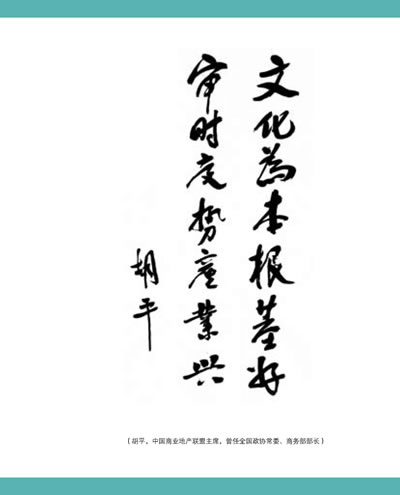 文化為本根基好
审时度势產業兴
胡平
（胡平，中国商业地产联盟主席，曾任全国政协常委、商务部部长）